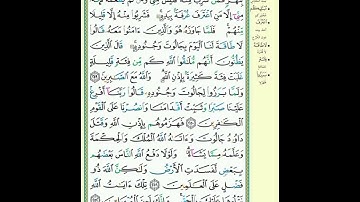 مِنِّيٓ إِلَّا مَنِ ٱغۡتَرَفَ غُرۡفَةَۢ بِيَدِهِۦۚ فَشَرِبُواْ مِنۡهُ إِلَّا قَلِيلٗا
مِّنۡهُمۡۚ فَلَمَّا جَاوَزَهُۥ هُوَ وَٱلَّذِينَ ءَامَنُواْ مَعَهُۥ قَالُواْ
لَا طَاقَةَ لَنَا ٱلۡيَوۡمَ بِجَالُوتَ وَجُنُودِهِۦۚ قَالَ ٱلَّذِينَ
يَظُنُّونَ أَنَّهُم مُّلَٰقُواْ ٱللَّهِ كَم مِّن فِئَةٖ قَلِيلَةٍ
غَلَبَتۡ فِئَةٗ كَثِيرَةَۢ بِإِذۡنِ ٱللَّهِۗ وَٱللَّهُ مَعَ ٱلصَّٰبِرِينَ ٢٤٩
وَلَمَّا بَرَزُواْ لِجَالُوتَ وَجُنُودِهِۦ قَالُواْ رَبَّنَآ أَفۡرِغۡ
عَلَيۡنَا صَبۡرٗا وَثَبِّتۡ أَقۡدَامَنَا وَٱنصُرۡنَا عَلَى ٱلۡقَوۡمِ
ٱلۡكَٰفِرِينَ ٢٥٠ فَهَزَمُوهُم بِإِذۡنِ ٱللَّهِ وَقَتَلَ
دَاوُۥدُ جَالُوتَ وَءَاتَىٰهُ ٱللَّهُ ٱلۡمُلۡكَ وَٱلۡحِكۡمَةَ
وَعَلَّمَهُۥ مِمَّا يَشَآءُۗ وَلَوۡلَا دَفۡعُ ٱللَّهِ ٱلنَّاسَ بَعۡضَهُم
بِبَعۡضٖ لَّفَسَدَتِ ٱلۡأَرۡضُ وَلَٰكِنَّ ٱللَّهَ ذُو
فَضۡلٍ عَلَى ٱلۡعَٰلَمِينَ ٢٥١ تِلۡكَ ءَايَٰتُ ٱللَّهِ